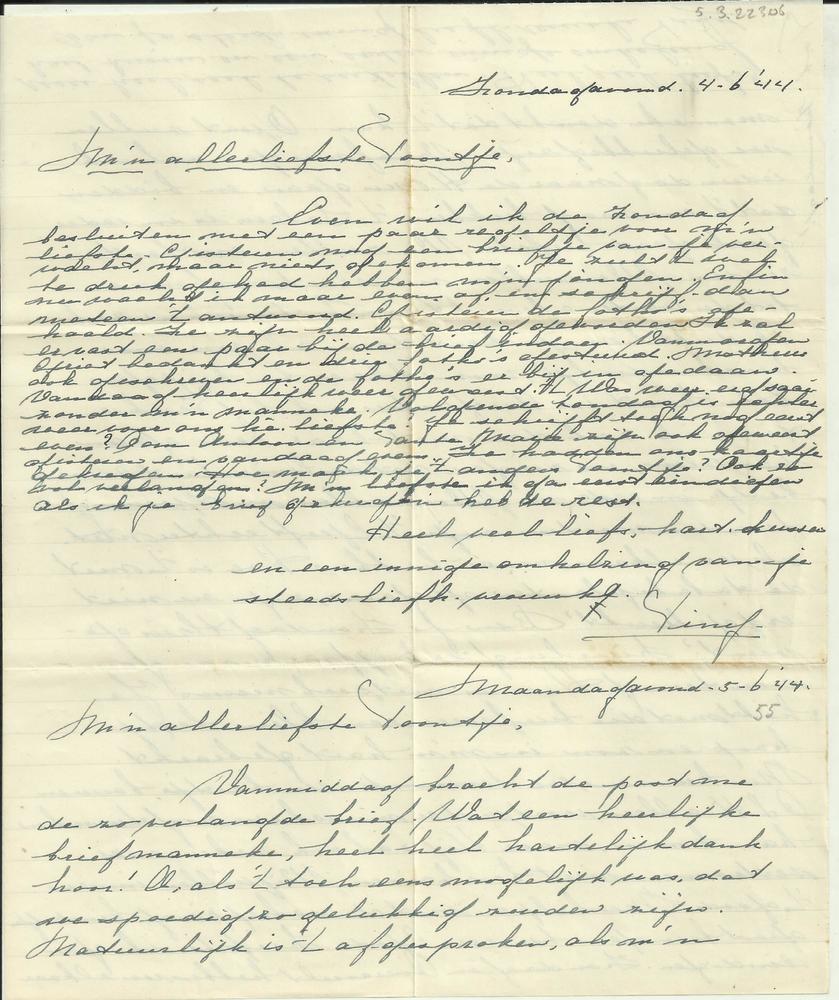 5.3.22306
Zondagavond. 4-6'44.
M'n allerliefste Toontje,
Even wil ik de Zondag
besluiten met een paar regeltjes voor m'n
liefste. Gisteren nog een briefje van je ver-
wacht, maar niets gekomen. Je zult 't wel
te druk gehad hebben m'n jongen. Enfin
nu wacht ik maar even af, en schrijf dan
meteen 't antwoord. Gisteren de fotho's ge-
haald. Ze zijn heel aardig geworden. Ik zal
er vast een paar bij de brief indoen. Vanmorgen
bedankt en drie fotho's gestuurd.
ook geschreven en de fotho's er bij in gedaan.
Vandaag heerlijk weer geweest. 't Was weer erg saai
zonder m'n manneke. Volgende Zondag is echter
weer voor ons hè liefste? Je schrijft toch nog eerst
even? Oom Antoon en Tante Marie zijn ook geweest
gisteren en vandaag even. Ze hadden ons kaartje
gekregen. Hoe maak je 't anders Toontje? Ook zo
vol verlangen? M'n liefste ik ga eerst eindigen
als ik je brief gekregen heb de rest.
Heel veel liefs, hart. kussen
en een innige omhelzing van je
steeds liefh. vrouwke.
x Tiny
Maandagavond. 5-6'44.
55
M'n allerliefste Toontje,
Vanmiddag bracht de post me
de zo verlangde brief. Wat een heerlijke
brief manneke, heel heel hartelijk dank
hoor! O, als 't toch eens mogelijk was, dat
we spoedig zo gelukkig zouden zijn.
Natuurlijk is 't afgesproken, als m'n